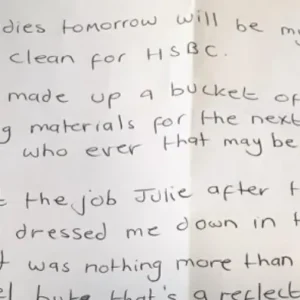 dies tomorrow will be m
clean for HSBC.
made up a bucket of
g materials for the next
who ever that may be
the job Julie after t
dressed me down in t
was nothing more than
but that's a reflect